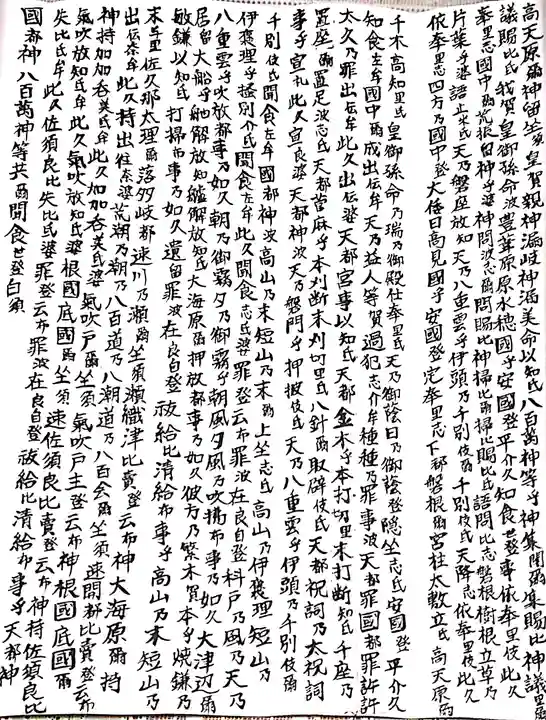 高天原爾神留坐須皇賀親神漏岐神漏美命以知氐八百萬神等乎神集閒爾集賜比神議里爾
議賜比氐我賀皇御孫命波豊葦原原水穂國乎安國登平介久知食世登事依奉里伎此久
奉里志國中爾荒振留神乎婆神問波志爾問賜比神掃比爾掃比賜比氐語問比志磐根樹根立草乃
片葉乎婆語止米氐天乃磐座放知天乃八重雲乎伊頭乃千別伎爾千別伎氐天降志依奉里伎此久
依奉里志四方乃國中登大倭日高見國乎安國登定奉里志下都磐根爾宮柱太敷立氐高天原爾
千木高知里氐皇御孫命乃瑞乃御殿仕奉里氐天乃御蔭日乃御蔭登隠坐志氐安國登平介久
知食左牟國中爾成出伝牟天乃益人等賀過犯志介牟種種乃罪事波天都罪國都罪許許
太久乃罪出伝牟此久出伝婆天都宮事以知氐天都金木乎本打切里末打断知氐千座乃
置座爾置足波志氐天都菅麻乎本刈断末刈切里氐八針爾取辟伎氐天都祝詞乃太祝詞
事乎宣礼此久宣良婆天都神波天乃磐門乎押披伎氐天乃八重雲乎伊頭乃千別伎爾
千別伎氐聞食左牟國都神波高山乃末短山乃末爾上坐志氐高山乃伊褒理短山乃
伊褒理乎掻別介氐聞食左牟此久聞食志氐婆罪登云布罪波在良自登科戸乃風乃天乃
八重雲乎吹放都事乃如久朝乃御霧夕乃御霧乎朝風夕風乃吹拂布事乃如久大津辺爾
居留大船乎舳解放知艫解放知氐大海原爾押放都事乃如久彼方乃繁木賀本乎焼鎌乃
敏鎌以知氐打掃布事乃如久遺留罪波在良自登祓給比清給布事乎高山乃末短山乃
末与里佐久那太理爾落多岐都速川乃瀬爾坐須瀬織津比賣登云布神大海原爾持
出伝奈牟此久持出往奈婆荒潮乃潮乃八百道乃八潮道乃潮乃八百会爾坐須速開都比賣登云布
神持加加呑美氐牟此久加加呑美氐婆氣吹戸爾坐須氣吹戸主登云布神根國底國爾
氣吹放知氐牟此久氣吹放知氐婆根國底國爾坐須速佐須良比賣登云布神持佐須良比
失比氐牟此久佐須良比失比氐婆罪登云布罪波在良自登祓給比清給布事乎天都神
國都神八百萬神等共爾聞食世登白須